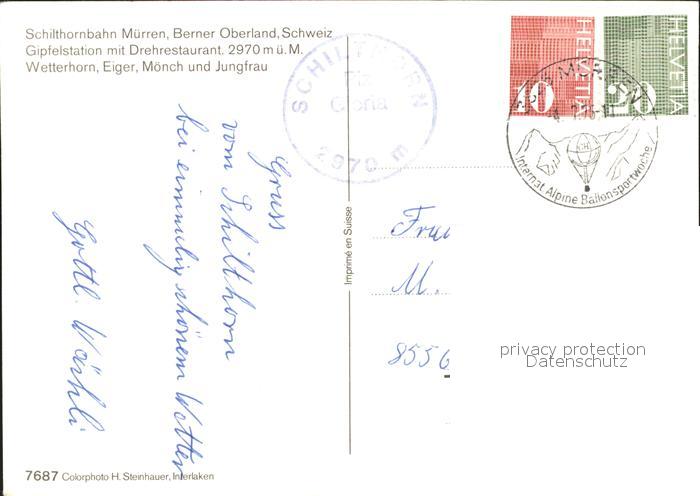 Schilthornbahn Mürren, Berner Oberland, Schweiz
Gipfelstation mit Drehrestaurant. 2970 m ü. M.
Wetterhorn, Eiger, Mönch und Jungfrau
SCHILTHORN
Piz
Gloria
2970 m
HELVETIA
10
HELVETIA
20
MÜRREN
Internat. Alpine Ballonsportwoche
Gruss
vom Schilthorn
bei einmalig schönem Wetter
Gottl.
Imprimé en Suisse
Frau
M.
8556
privacy protection
Datenschutz
7687 Colorphoto H. Steinhauer, Interlaken